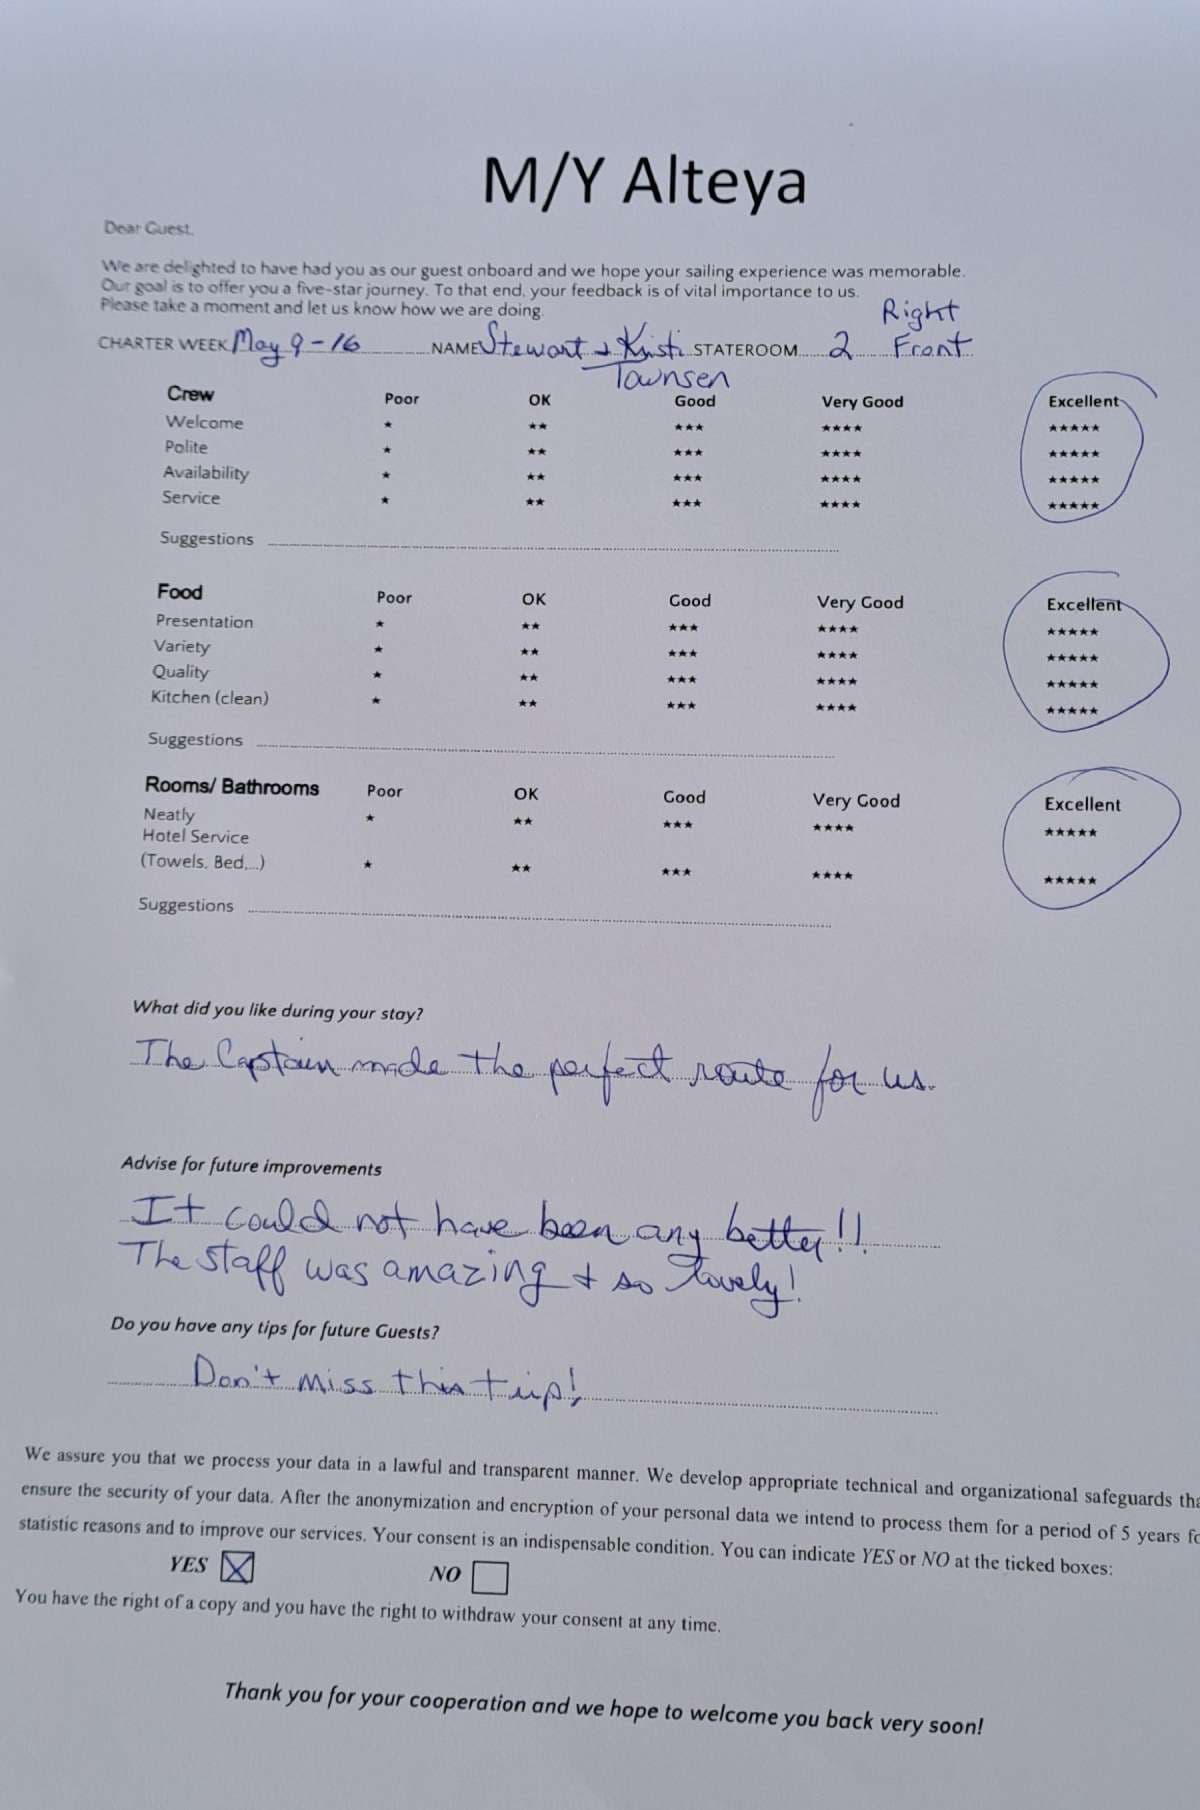 M/Y Alteya
Dear Guest,
We are delighted to have had you as our guest onboard and we hope your sailing experience was memorable.
Our goal is to offer you a five-star journey. To that end, your feedback is of vital importance to us.
Please take a moment and let us know how we are doing.
Right
CHARTER WEEK May 9-16 NAME Stewart & Kristi STATEROOM 2 Front
Townsen
Crew Poor OK Good Very Good Excellent
Welcome ★ ★★ ★★★ ★★★★ ★★★★★
Polite ★ ★★ ★★★ ★★★★ ★★★★★
Availability ★ ★★ ★★★ ★★★★ ★★★★★
Service ★ ★★ ★★★ ★★★★ ★★★★★
Suggestions
Food Poor OK Good Very Good Excellent
Presentation ★ ★★ ★★★ ★★★★ ★★★★★
Variety ★ ★★ ★★★ ★★★★ ★★★★★
Quality ★ ★★ ★★★ ★★★★ ★★★★★
Kitchen (clean) ★ ★★ ★★★ ★★★★ ★★★★★
Suggestions
Rooms/ Bathrooms Poor OK Good Very Good Excellent
Neatly ★ ★★ ★★★ ★★★★ ★★★★★
Hotel Service
(Towels, Bed,...) ★ ★★ ★★★ ★★★★ ★★★★★
Suggestions
What did you like during your stay?
The Captain made the perfect route for us.
Advise for future improvements
It could not have been any better!!
The staff was amazing & so lovely!
Do you have any tips for future Guests?
Don't miss this trip!
We assure you that we process your data in a lawful and transparent manner. We develop appropriate technical and organizational safeguards tha
ensure the security of your data. After the anonymization and encryption of your personal data we intend to process them for a period of 5 years fo
statistic reasons and to improve our services. Your consent is an indispensable condition. You can indicate YES or NO at the ticked boxes:
YES NO
You have the right of a copy and you have the right to withdraw your consent at any time.
Thank you for your cooperation and we hope to welcome you back very soon!